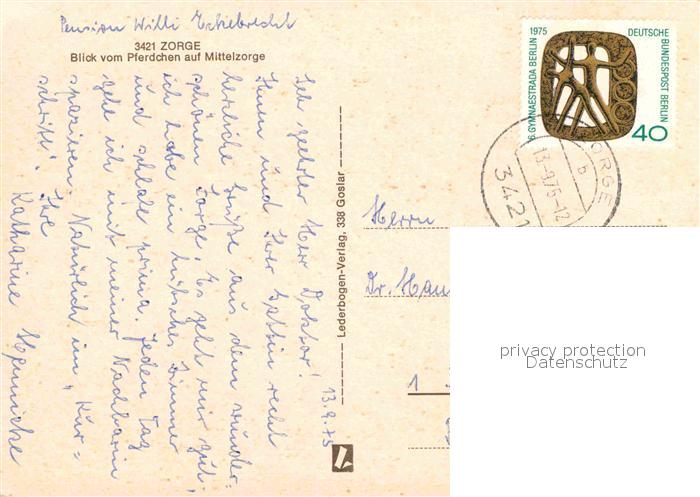 Pension Willi
3421 ZORGE
Blick vom Pferdchen auf Mittelzorge
Seh geehrter Herr Doktor!
Ihnen und Ihrer Gattin recht
herzliche Grüße aus dem wunder=
schönen Zorge. Es geht mir gut,
ich habe ein hübsches Zimmer
und schlafe prima. Jeden Tag
gehe ich mit meiner Nachbarin
spazieren. Natürlich im „Kur=
schritt“! Ihre
Katharine
13.9.75
Lederbogen-Verlag, 338 Goslar
1975
6 GYMNAESTRADA BERLIN
DEUTSCHE
BUNDESPOST BERLIN
40
3421 ZORGE
b
13.-9.75-12
Herrn
Dr.
1
privacy protection
Datenschutz